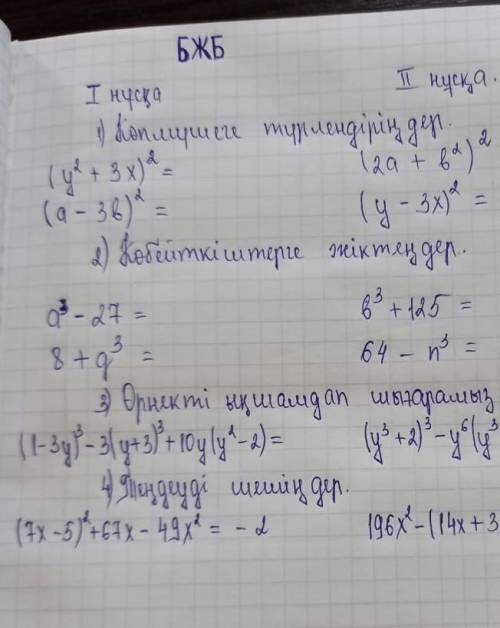 БЖБ
I нұсқа II нұсқа.
1) Көпмүшеге түрлендіріңдер.
(y² + 3x)² = (2a + b²)²
(a - 3b)² = (y - 3x)² =
2) Көбейткіштерге жіктеңдер.
a³ - 27 = b³ + 125 =
8 + q³ = 64 - n³ =
3) Өрнекті ықшамдап шығарамыз
(1-3y)³ - 3(y+3)³ + 10y(y² - 2) = (y³ + 2)³ - y⁶(y³
4) Теңдеуді шешіңдер.
(7x - 5)² + 67x - 49x² = - 2 196x² - (14x + 3